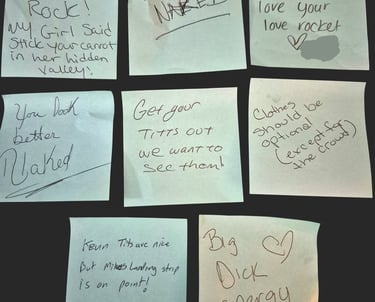 Rock!
My Girl Said
Stick your carrot
in her hidden
valley!
NAKED
love your
love rocket
You look
better
Naked
Get your
Titts out
we want to
see them!
Clothes
should be
optional
(except for
the crowd)
Kevin Tits are nice
But Mikes Landing strip
is on point!
Big
Dick
energy